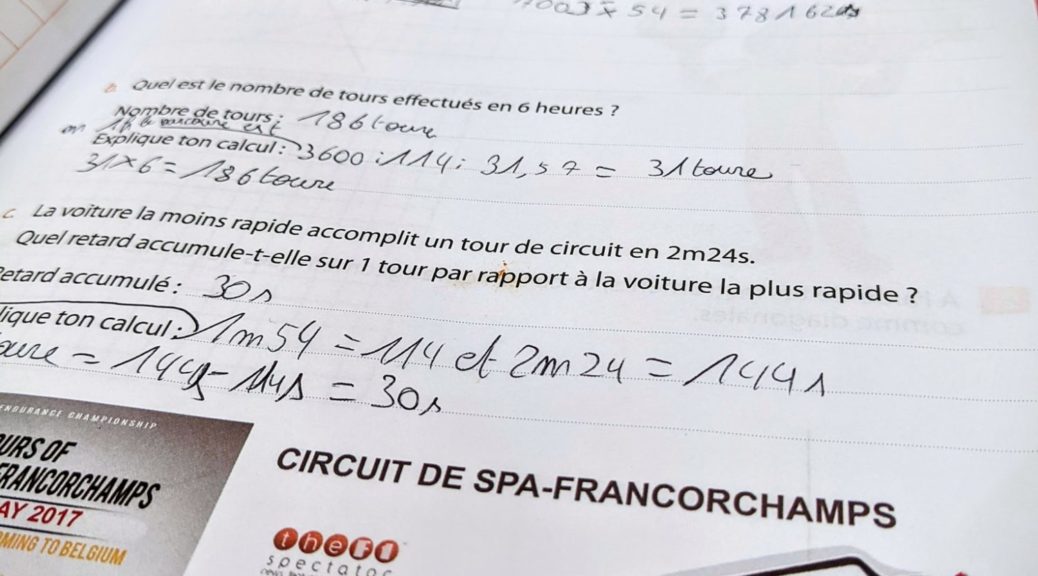 7003 x 54 = 378162
b. Quel est le nombre de tours effectués en 6 heures ?
Nombre de tours : 186 toure
en 1h le parcoure est
Explique ton calcul : 3600 : 114 : 31,57 = 31 toure
31x6 = 186 toure
c. La voiture la moins rapide accomplit un tour de circuit en 2m24s.
Quel retard accumule-t-elle sur 1 tour par rapport à la voiture la plus rapide ?
etard accumulé : 30s
lique ton calcul : 1m54 = 114 et 2m24 = 144s
oure = 144s - 114s = 30s
ENDURANCE CHAMPIONSHIP
OURS OF
FRANCORCHAMPS
AY 2017
MING TO BELGIUM
CIRCUIT DE SPA-FRANCORCHAMPS
theF1
spectator